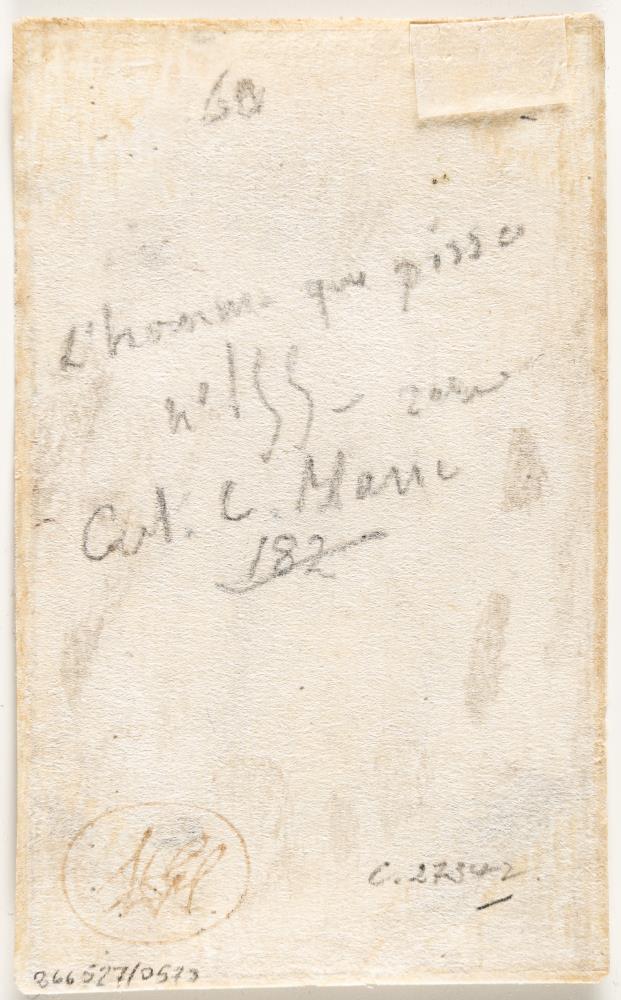 60
L'homme que pisse
n° 155 -
Cat. C. Marie
182
C. 27342.
866527/0573